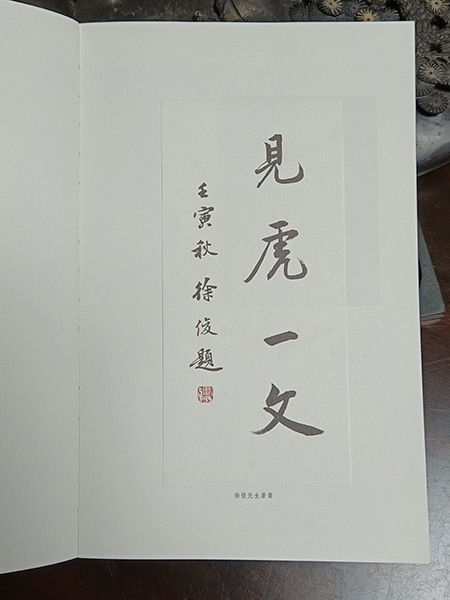 見虎一文
壬寅秋 徐俊題
徐俊先生署簽